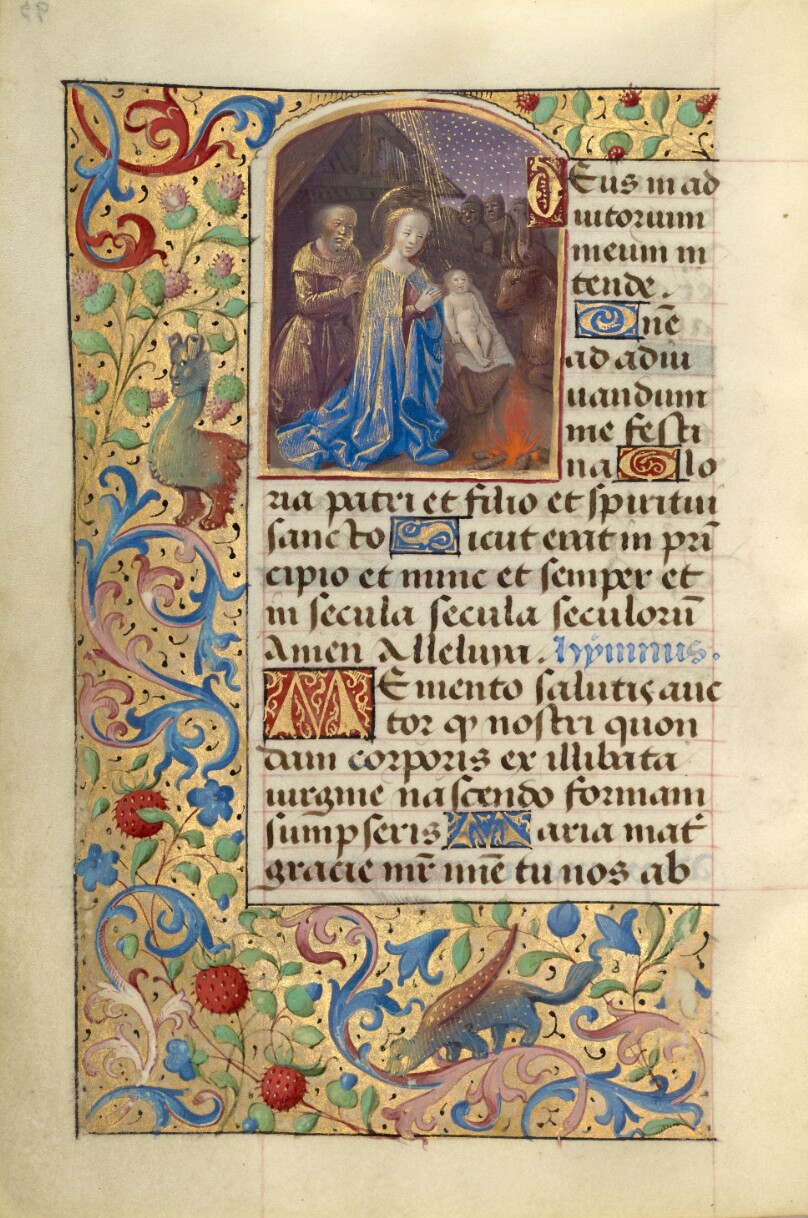 Deus in ad
iutorium
meum in
tende.
Dn̄e
ad adiu
uandum
me festi
na Glo
ria patri et filio et spiritui
sancto Sicut erat in pri
cipio et nunc et semper et
in secula secula seculoru̅
Amen Alleluya. hymnus.
Memento salutis auc
tor ꝙ nostri quon
dam corporis ex illibata
uirgine nascendo formam
sumpseris Maria mat᷑
gracie mr̄ mīe tu nos ab